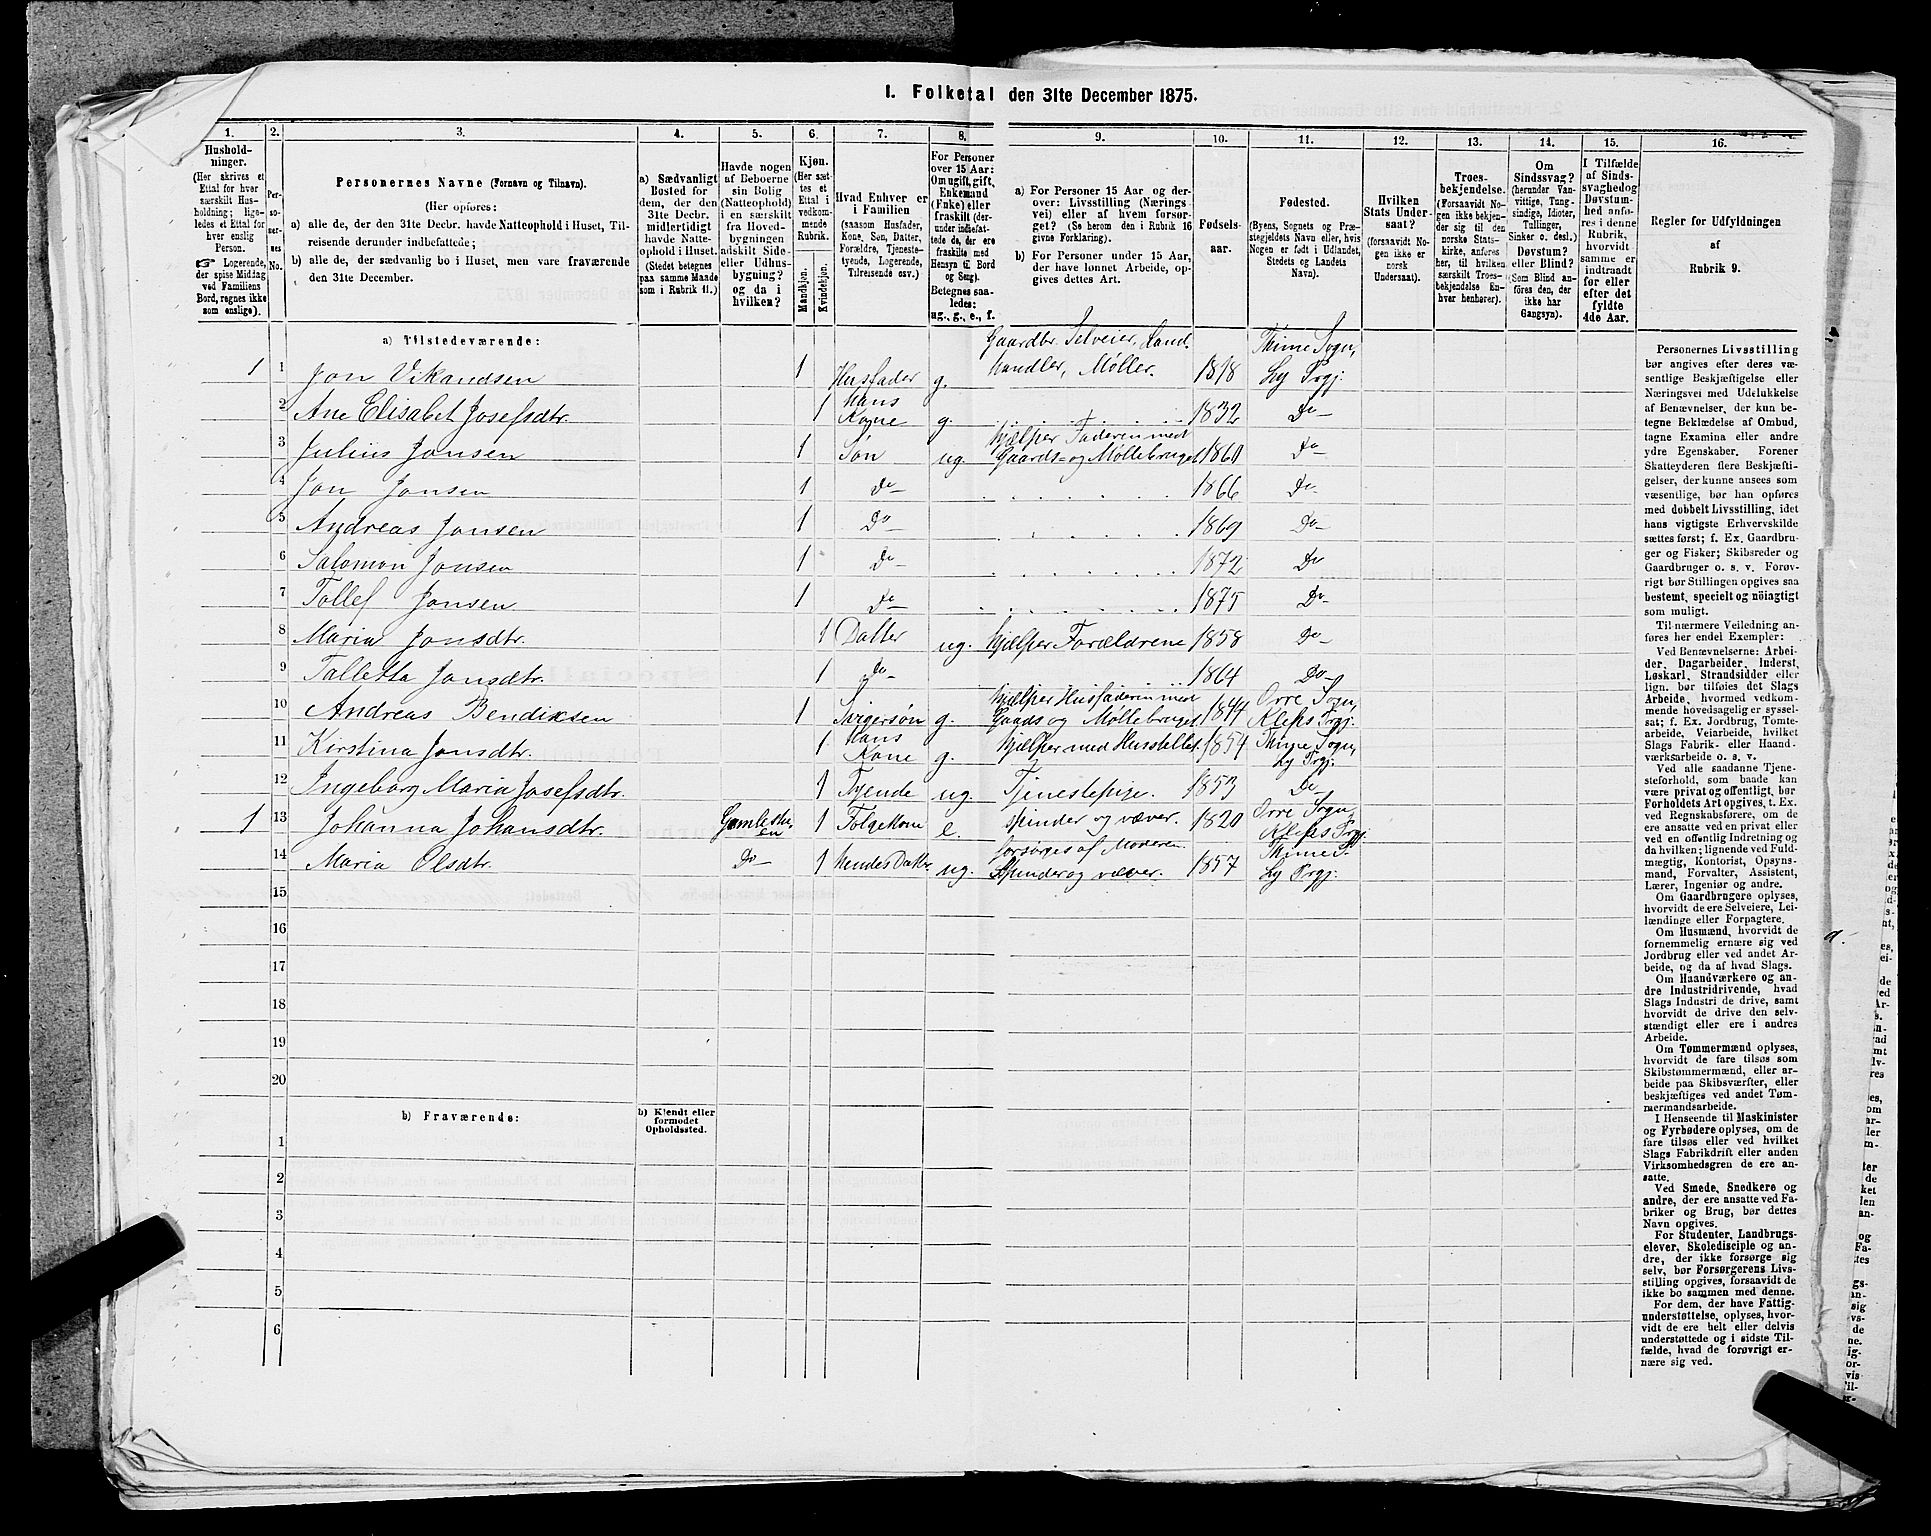 I. Folketal den 31te December 1875.
1. 2. 3. 4. 5. 6. 7. 8. 9. 10. 11. 12. 13. 14. 15. 16.
Husholdninger.
(Her skrives et
Ettal for hver
særskilt Husholdning;
ligeledes
et Ettal for
hver enslig
Person.
☞ Logerende,
der spise Middag
ved Familiens
Bord, regnes ikke
som enslige).
Personernes No.
Personernes Navne (Fornavn og Tilnavn).
(Her opføres:
a) alle de, der den 31te Decbr. havde Natteophold i Huset, Tilreisende
derunder indbefattede;
b) alle de, der sædvanlig bo i Huset, men vare fraværende
den 31te December.
a) Sædvanligt
Bosted for
dem, der den
31te Decbr.
midlertidigt
havde Natteophold
i Huset.
(Stedet betegnes
paa samme Maade
som i Rubrik 11.)
Havde nogen
af Beboerne
sin Bolig
(Natteophold)
i en særskilt
fra Hovedbygningen
adskilt Side-
eller Udhusbygning?
og da i
hvilken?
Kjøn.
(Her sættes
et
Ettal i
vedkommende
Rubrik.
Mandkjøn.
Kvindekjøn.
Hvad Enhver er
i Familien
(saasom Husfader,
Kone, Søn, Datter,
Forældre, Tjenestetyende,
Logerende,
Tilreisende osv.)
For Personer
over 15 Aar:
Om ugift, gift,
Enkemand
(Enke) eller
fraskilt (derunder
indbefattede
de, der ere
fraskilte med
Hensyn til Bord
og Seng).
Betegnes saaledes:
ug., g., e., f.
a) For Personer 15 Aar og derover:
Livsstilling (Næringsvei)
eller af hvem forsørget?
(Se herom den i Rubrik 16
givne Forklaring).
b) For Personer under 15 Aar,
der have lønnet Arbeide, opgives
dettes Art.
Fødselsaar.
Fødested.
(Byens, Sognets og Præstegjeldets
Navn eller, hvis
Nogen er født i Udlandet,
Stedets og Landets
Navn).
Hvilken
Stats Undersaat?
(forsaavidt Nogen
ikke er
norsk
Undersaat).
Troesbekjendelse.
(Forsaavidt Nogen
ikke bekjender
sig til den
norske Statskirke,
anføres
her, til hvilken
særskilt Troesbekjendelse
Enhver
henhører).
Om
Sindssvag?
(herunder Vanvittige,
Tungsindige,
Idioter,
Tullinger,
Sinker o. desl.)
Døvstum?
eller Blind?
(Som Blind anføres
den, der
ikke har
Gangsyn).
I Tilfælde
af Sindssvaghed
og
Døvstumhed
anføres
i denne
Rubrik,
hvorvidt
samme er
indtraadt
før eller
efter det
fyldte
4de Aar.
Regler for Udfyldningen
af
Rubrik 9.
a) Tilstedeværende:
1 1 Jon Vikandsen 1 Husfader g. Gaardbr. Selveier, Land handler, Møller. 1818 Thime Sogn, Ly Prgj.
2 Ane Elisabet Josefsdtr. 1 Hans Kone g. 1832 Do
3 Julius Jonsen 1 Søn ug. hjælper Faderen med Gaards- og Møllebruget 1860 Do
4 Jon Jonsen 1 Do 1866 Do
5 Andreas Jonsen 1 Do 1869 Do
6 Salomon Jonsen 1 Do 1872 Do
7 Tollef Jonsen 1 Do 1875 Do
8 Maria Jonsdtr. 1 Datter ug. hjælper Forældrene 1858 Do
9 Talletta Jonsdtr. 1 Do 1864 Do
10 Andreas Bendiksen 1 Svigersøn g. hjælper Husfaderen med Gaards og Møllebruget 1844 Orre Sogn, Kleps Prgj.
11 Kirstina Jonsdtr. 1 Hans Kone g. hjælper med Husstellet. 1854 Thime Sogn, Ly Prgj.
12 Ingeborg Maria Josefsdtr. 1 Tyende ug. Tjenestepige. 1853 Do
1 13 Johanna Johansdtr. 1 Folgekone e. spinder og væver. 1820 Orre Sogn, Kleps Prgj.
14 Maria Olsdtr. Do 1 hendes Datter ug. forsørges af Moderen Spinder og væver. 1857 Thime S. Ly Prgj.
15
16
17
18
19
20
b) Fraværende:
b) Kjendt eller
formodet
Opholdssted.
1
2
3
4
5
6
Personernes Livsstilling
bør angives efter deres væsentlige
Beskjæftigelse eller
Næringsvei med Udelukkelse
af Benævnelser, der kun betegne
Beklædelse af Ombud,
tagne Examina eller andre
ydre Egenskaber. Forener
Skatteyderen flere Beskjæftigelser,
der kunne ansees som
væsentlige, bør han opføres
med dobbelt Livsstilling, idet
hans vigtigste Erhvervskilde
sættes først; f. Ex. Gaardbruger
og Fisker; Skibsreder og
Gaardbruger o. s. v. Forøvrigt
bør Stillingen opgives saa
bestemt, specielt og nöiagtigt
som muligt.
Til nærmere Veiledning anføres
her endel Exempler:
Ved Benævnelserne: Arbeider,
Dagarbeider, Inderst,
Løskarl, Strandsidder eller
lign. bør tilføies det Slags
Arbeide, hvormed vedkommende
hovedsagelig er sysselsat;
f. Ex. Jordbrug, Tomtearbeide,
Veiarbeide, hvilket
Slags Fabrik- eller Haandværksarbeide
o. s. v.
Ved alle saadanne Tjenesteforhold,
som baade kan
være privat og offentligt, bør
Forholdets Art opgives, t. Ex.
ved Regnskabsførere, om de
ere ansatte ved en privat eller
ved en offentlig Indretning og
da hvilken; lignende ved Fuldmægtig,
Kontorist, Opsynsmand,
Forvalter, Assistent,
Lærer, Ingeniør og andre.
Om Gaardbrugere oplyses,
hvorvidt de ere Selveiere, Leilændinge
eller Forpagtere.
Om Husmænd, hvorvidt de
fornemmelig ernære sig ved
Jordbrug eller ved andet Arbeide,
og da af hvad Slags.
Om Haandværkere og andre
Industridrivende, hvad
Slags Industri de drive, samt
hvorvidt de drive den selvstændigt
eller ere i andres
Arbeide.
Om Tømmermænd oplyses,
hvorvidt de fare tilsøs som
Skibstømmermænd, eller arbeide
paa Skibsværfter, eller
beskjæftiges ved andet Tømmermandsarbeide.
I Henseende til Maskinister
og Fyrbødere oplyses, om de
fare tilsøs eller ved hvilket
Slags Fabrikdrift eller anden
Virksomhedsgren de ere ansatte.
Ved Smede, Snedkere og
andre, der ere ansatte ved Fabriker
og Brug, bør dettes
Navn opgives.
For Studenter, Landbrugselever,
Skoledisciple og andre,
der ikke forsørge sig
selv, bør Forsørgerens Livsstilling
opgives, forsaavidt de
ikke bo sammen med denne.
For dem, der have Fattigunderstøttelse,
oplyses, hvorvidt
de ere helt eller delvis
understøttede og i sidste Tilfælde,
hvad de forøvrigt ernære
sig ved.